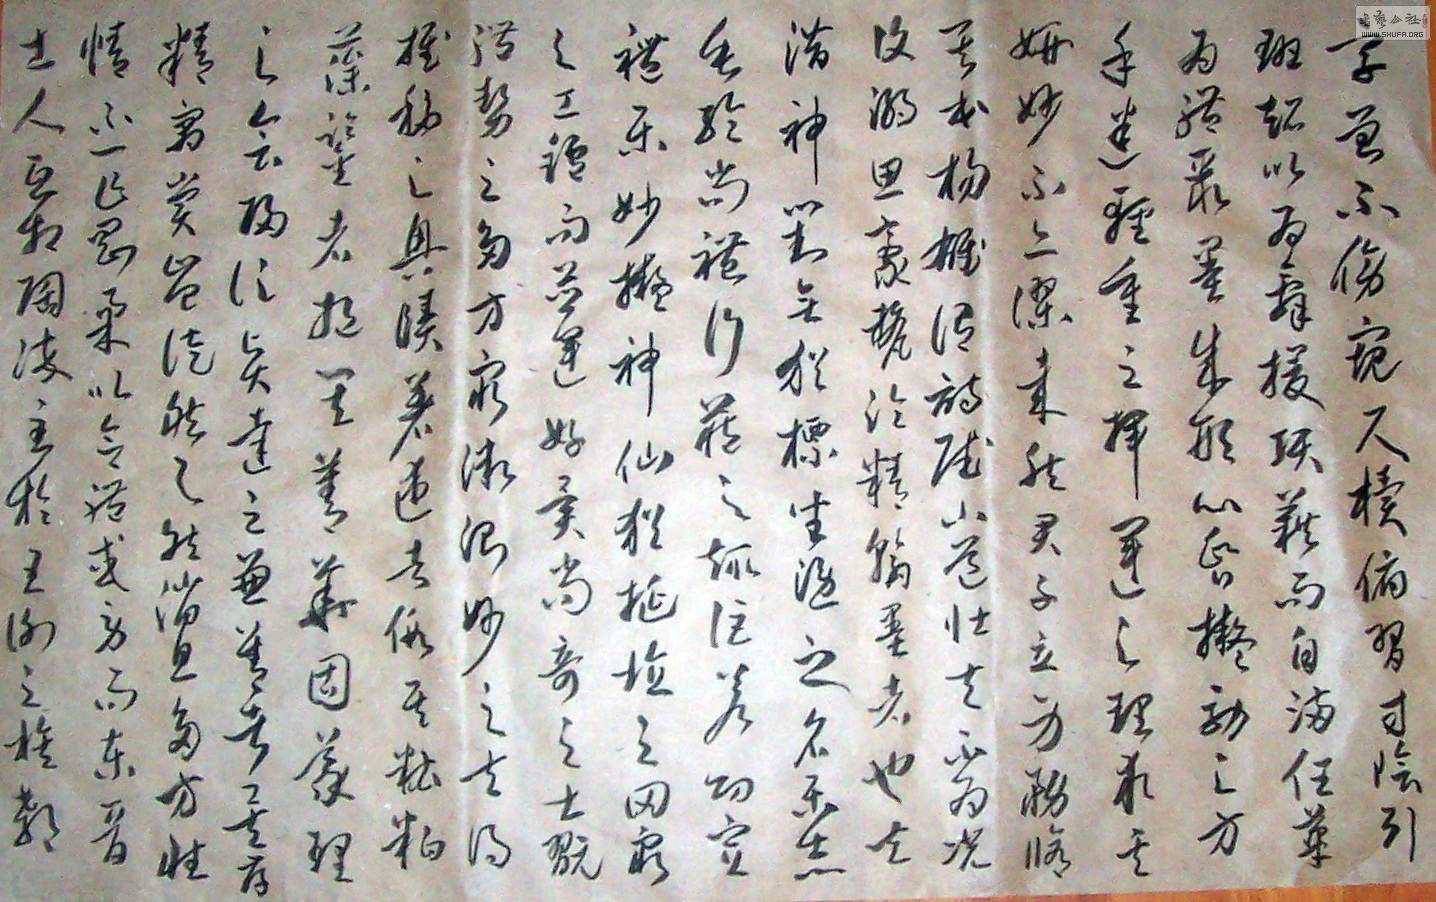 字曾不傍窺尺牘俯習寸陰引
班超以為辭援項籍而自滿任筆
為體聚墨成形心昏擬效之方
手迷輕重之揮運之理求其
妍妙不亦謬哉然君子立身務修
其本楊雄謂詩賦小道壯夫不為況
復溺思豪氂淪精翰墨者也夫
潛神對弈猶標坐隱之名樂志
垂綸尚體行藏之趣詎若功定
禮樂妙擬神仙猶埏埴之罔窮
之工鑪而並運好異尚奇之士翫
體勢之多方窮微測妙之夫得
推移之奧賾著述者假其糟粕
藻鑒者挹其菁華固義理
之會歸信賢達之兼善者矣存
精寓賞豈徒然之然消息多方性
情不一乍剛柔以合體或勞而東晉
士人互相陶淬至於王謝之族郗
WWW.SHUFA.ORG